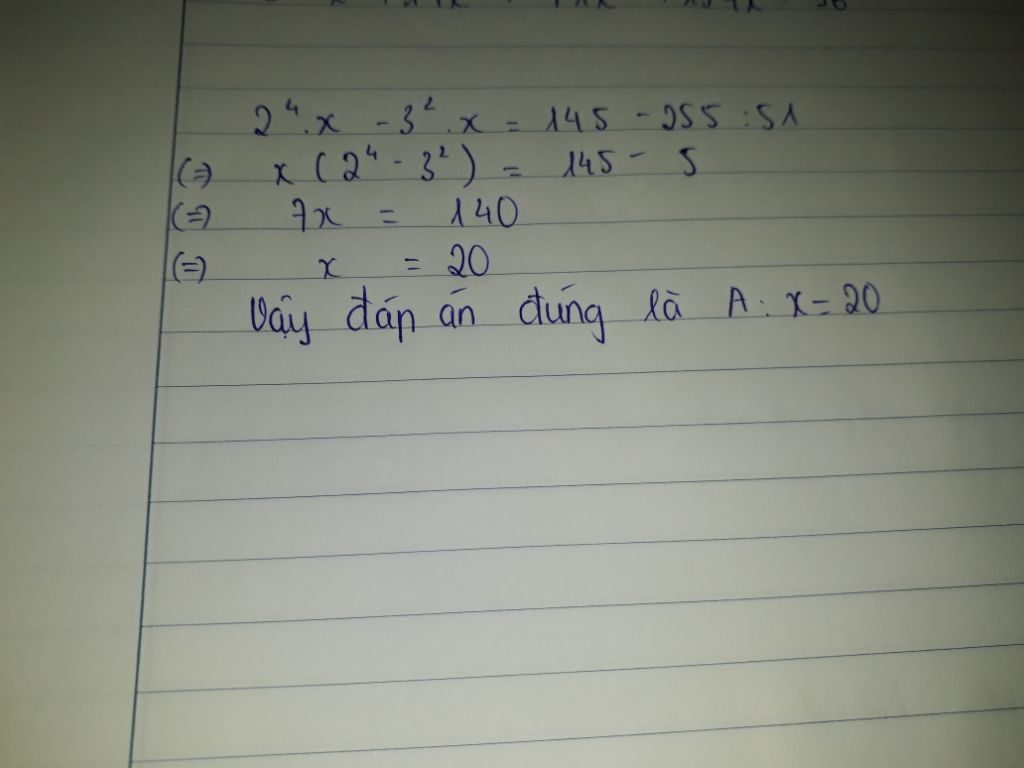 2⁴.x - 3².x = 145 - 255 : 51
(=) x (2⁴ - 3²) = 145 - 5
(=) 7x = 140
(=) x = 20
Vậy đáp án đúng là A: x = 20